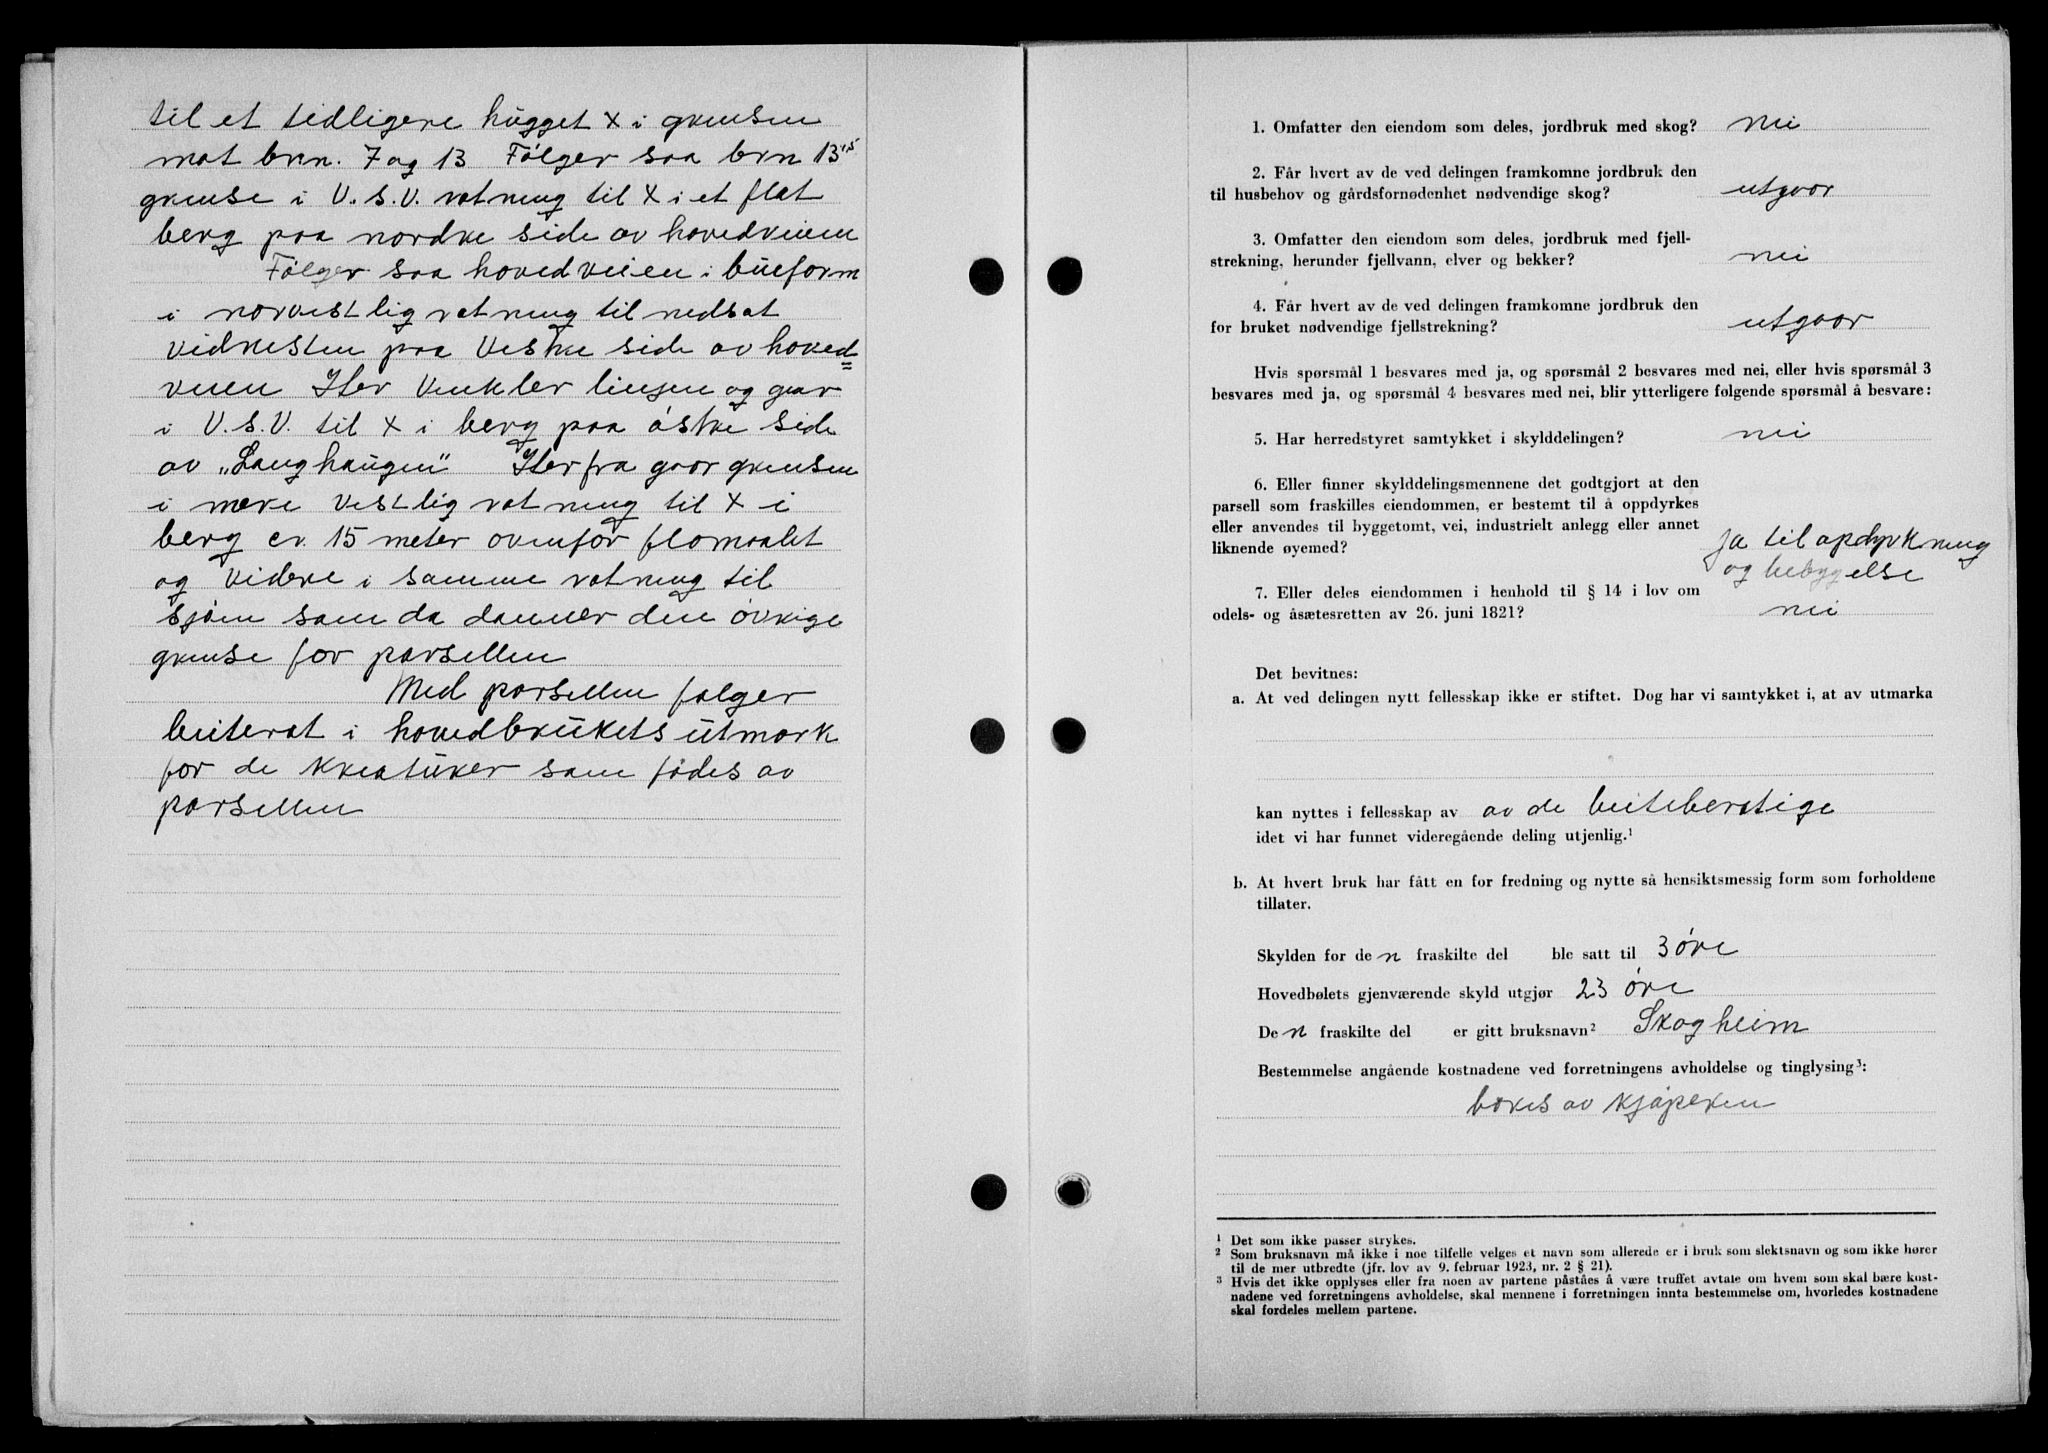 til et tidligere hugget x i grensen
mot brn. 7 og 13 Følger saa brn 13's
grense i V.S.V. retning til x i et flat
berg paa nordre side av hovedveien
Følger saa hovedveien i bueform
i norvestlig retning til nedsat
vidnesten paa Vestre side av hoved=
veien Her Vinkler linjen og gaar
i V.S.V. til x i berg paa østre side
av „Langhaugen" Herfra gaar grensen
i mere Vestlig retning til x i
berg cr. 15 meter ovenfor flomaalet
og Videre i samme retning til
sjøen som da danner den øvrige
grense for parsellen
Med parsellen følger
beiteret i hovedbrukets utmark
for de kreaturer som fødes av
parsellen
1. Omfatter den eiendom som deles, jordbruk med skog? nei
2. Får hvert av de ved delingen framkomne jordbruk den
til husbehov og gårdsfornødenhet nødvendige skog? utgaar
3. Omfatter den eiendom som deles, jordbruk med fjell-
strekning, herunder fjellvann, elver og bekker? nei
4. Får hvert av de ved delingen framkomne jordbruk den
for bruket nødvendige fjellstrekning? utgaar
Hvis spørsmål 1 besvares med ja, og spørsmål 2 besvares med nei, eller hvis spørsmål 3
besvares med ja, og spørsmål 4 besvares med nei, blir ytterligere følgende spørsmål å besvare:
5. Har herredstyret samtykket i skylddelingen? nei
6. Eller finner skylddelingsmennene det godtgjort at den
parsell som fraskilles eiendommen, er bestemt til å oppdyrkes
eller anvendes til byggetomt, vei, industrielt anlegg eller annet
liknende øyemed? ja til opdyrkning
og bebyggelse
7. Eller deles eiendommen i henhold til § 14 i lov om
odels- og åsætesretten av 26. juni 1821? nei
Det bevitnes:
a. At ved delingen nytt fellesskap ikke er stiftet. Dog har vi samtykket i, at av utmarka
kan nyttes i fellesskap av av de beiteberetige
idet vi har funnet videregående deling utjenlig.¹
b. At hvert bruk har fått en for fredning og nytte så hensiktsmessig form som forholdene
tillater.
Skylden for de n fraskilte del ble satt til 3 øre
Hovedbølets gjenværende skyld utgjør 23 øre
De n fraskilte del er gitt bruksnavn² Skogheim
Bestemmelse angående kostnadene ved forretningens avholdelse og tinglysing³:
bæres av kjøperen
¹ Det som ikke passer strykes.
² Som bruksnavn må ikke i noe tilfelle velges et navn som allerede er i bruk som slektsnavn og som ikke hører
til de mer utbredte (jfr. lov av 9. februar 1923, nr. 2 § 21).
³ Hvis det ikke opplyses eller fra noen av partene påstås å være truffet avtale om hvem som skal bære kost-
nadene ved forretningens avholdelse, skal mennene i forretningen innta bestemmelse om, hvorledes kostnadene
skal fordeles mellem partene.